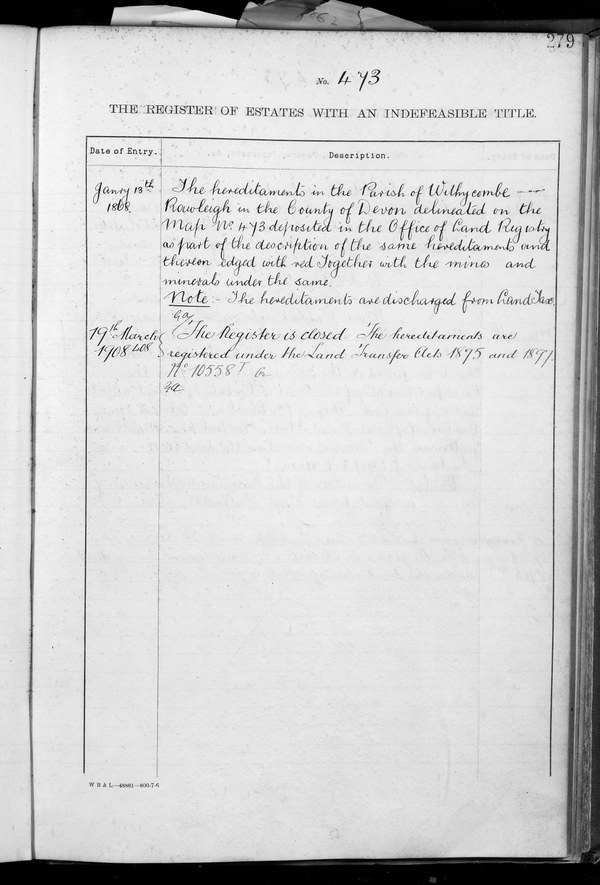 279
No. 473
THE REGISTER OF ESTATES WITH AN INDEFEASIBLE TITLE.
Date of Entry. Description.
Janry 13th 1868. The hereditaments in the Parish of Withycombe
Rawleigh in the County of Devon delineated on the
Map No. 473 deposited in the Office of Land Registry
as part of the description of the same hereditaments and
thereon edged with red Together with the mines and
minerals under the same.
Note:- The hereditaments are discharged from Land Tax.
19th March 1908 The Register is closed The hereditaments are
registered under the Land Transfer Acts 1875 and 1897.
No 10558
W B & L—48881—800-7-6